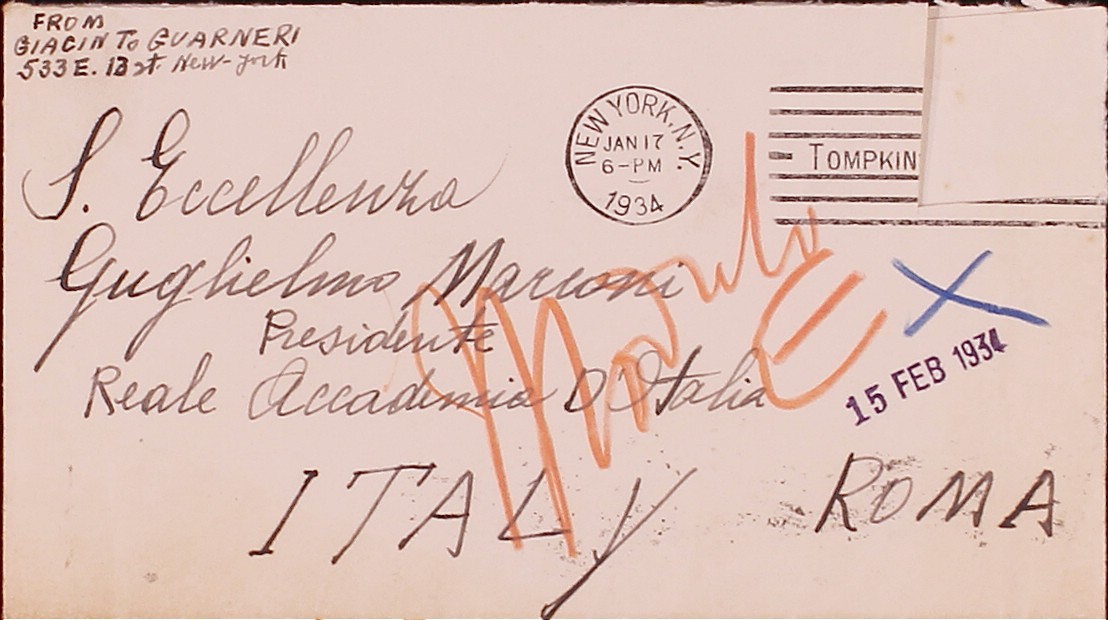 FROM
GIACINTO GUARNERI
533 E. 13 st. New-York
NEW YORK, N.Y.
JAN 17
6-PM
1934
TOMPKIN
S. Eccellenza
Guglielmo Marconi
Presidente
Reale Accademia D'Italia
15 FEB 1934
ITALY ROMA